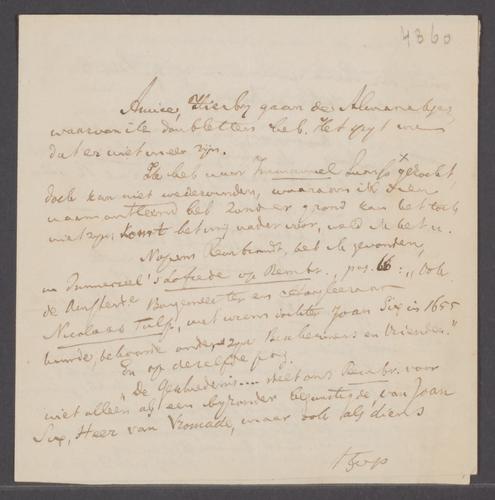 4360
Amice, Hierby gaan de Almanakjes,
waarvan ik doubletten heb. Het spyt me
dat er niet meer zyn.
Ik heb naar Immanuel gezocht
doch kan niet wedervinden, waarom ik dien
naam heb. Zonder grond kan het toch
niet zyn. Komt het my nader voor, meld ik het u.
Nopens Rembrandt, heb ik gevonden,
in Immerzeel's Lofrede op Rembr., pag. 66: "Ook
de Amsterd. Burgemeester en Hoogleeraar
Nicolaas Tulp, met wiens dochter Joan Six in 1655
huwde, behoorde onder zyn Beschermers en Vrienden."
En op dezelfde pag.
"De Geschiedenis.... stelt ons Rembr. voor
niet alleen als een byzonder begunstigde van Joan
Six, Heer van Vromade, maar ook als diens